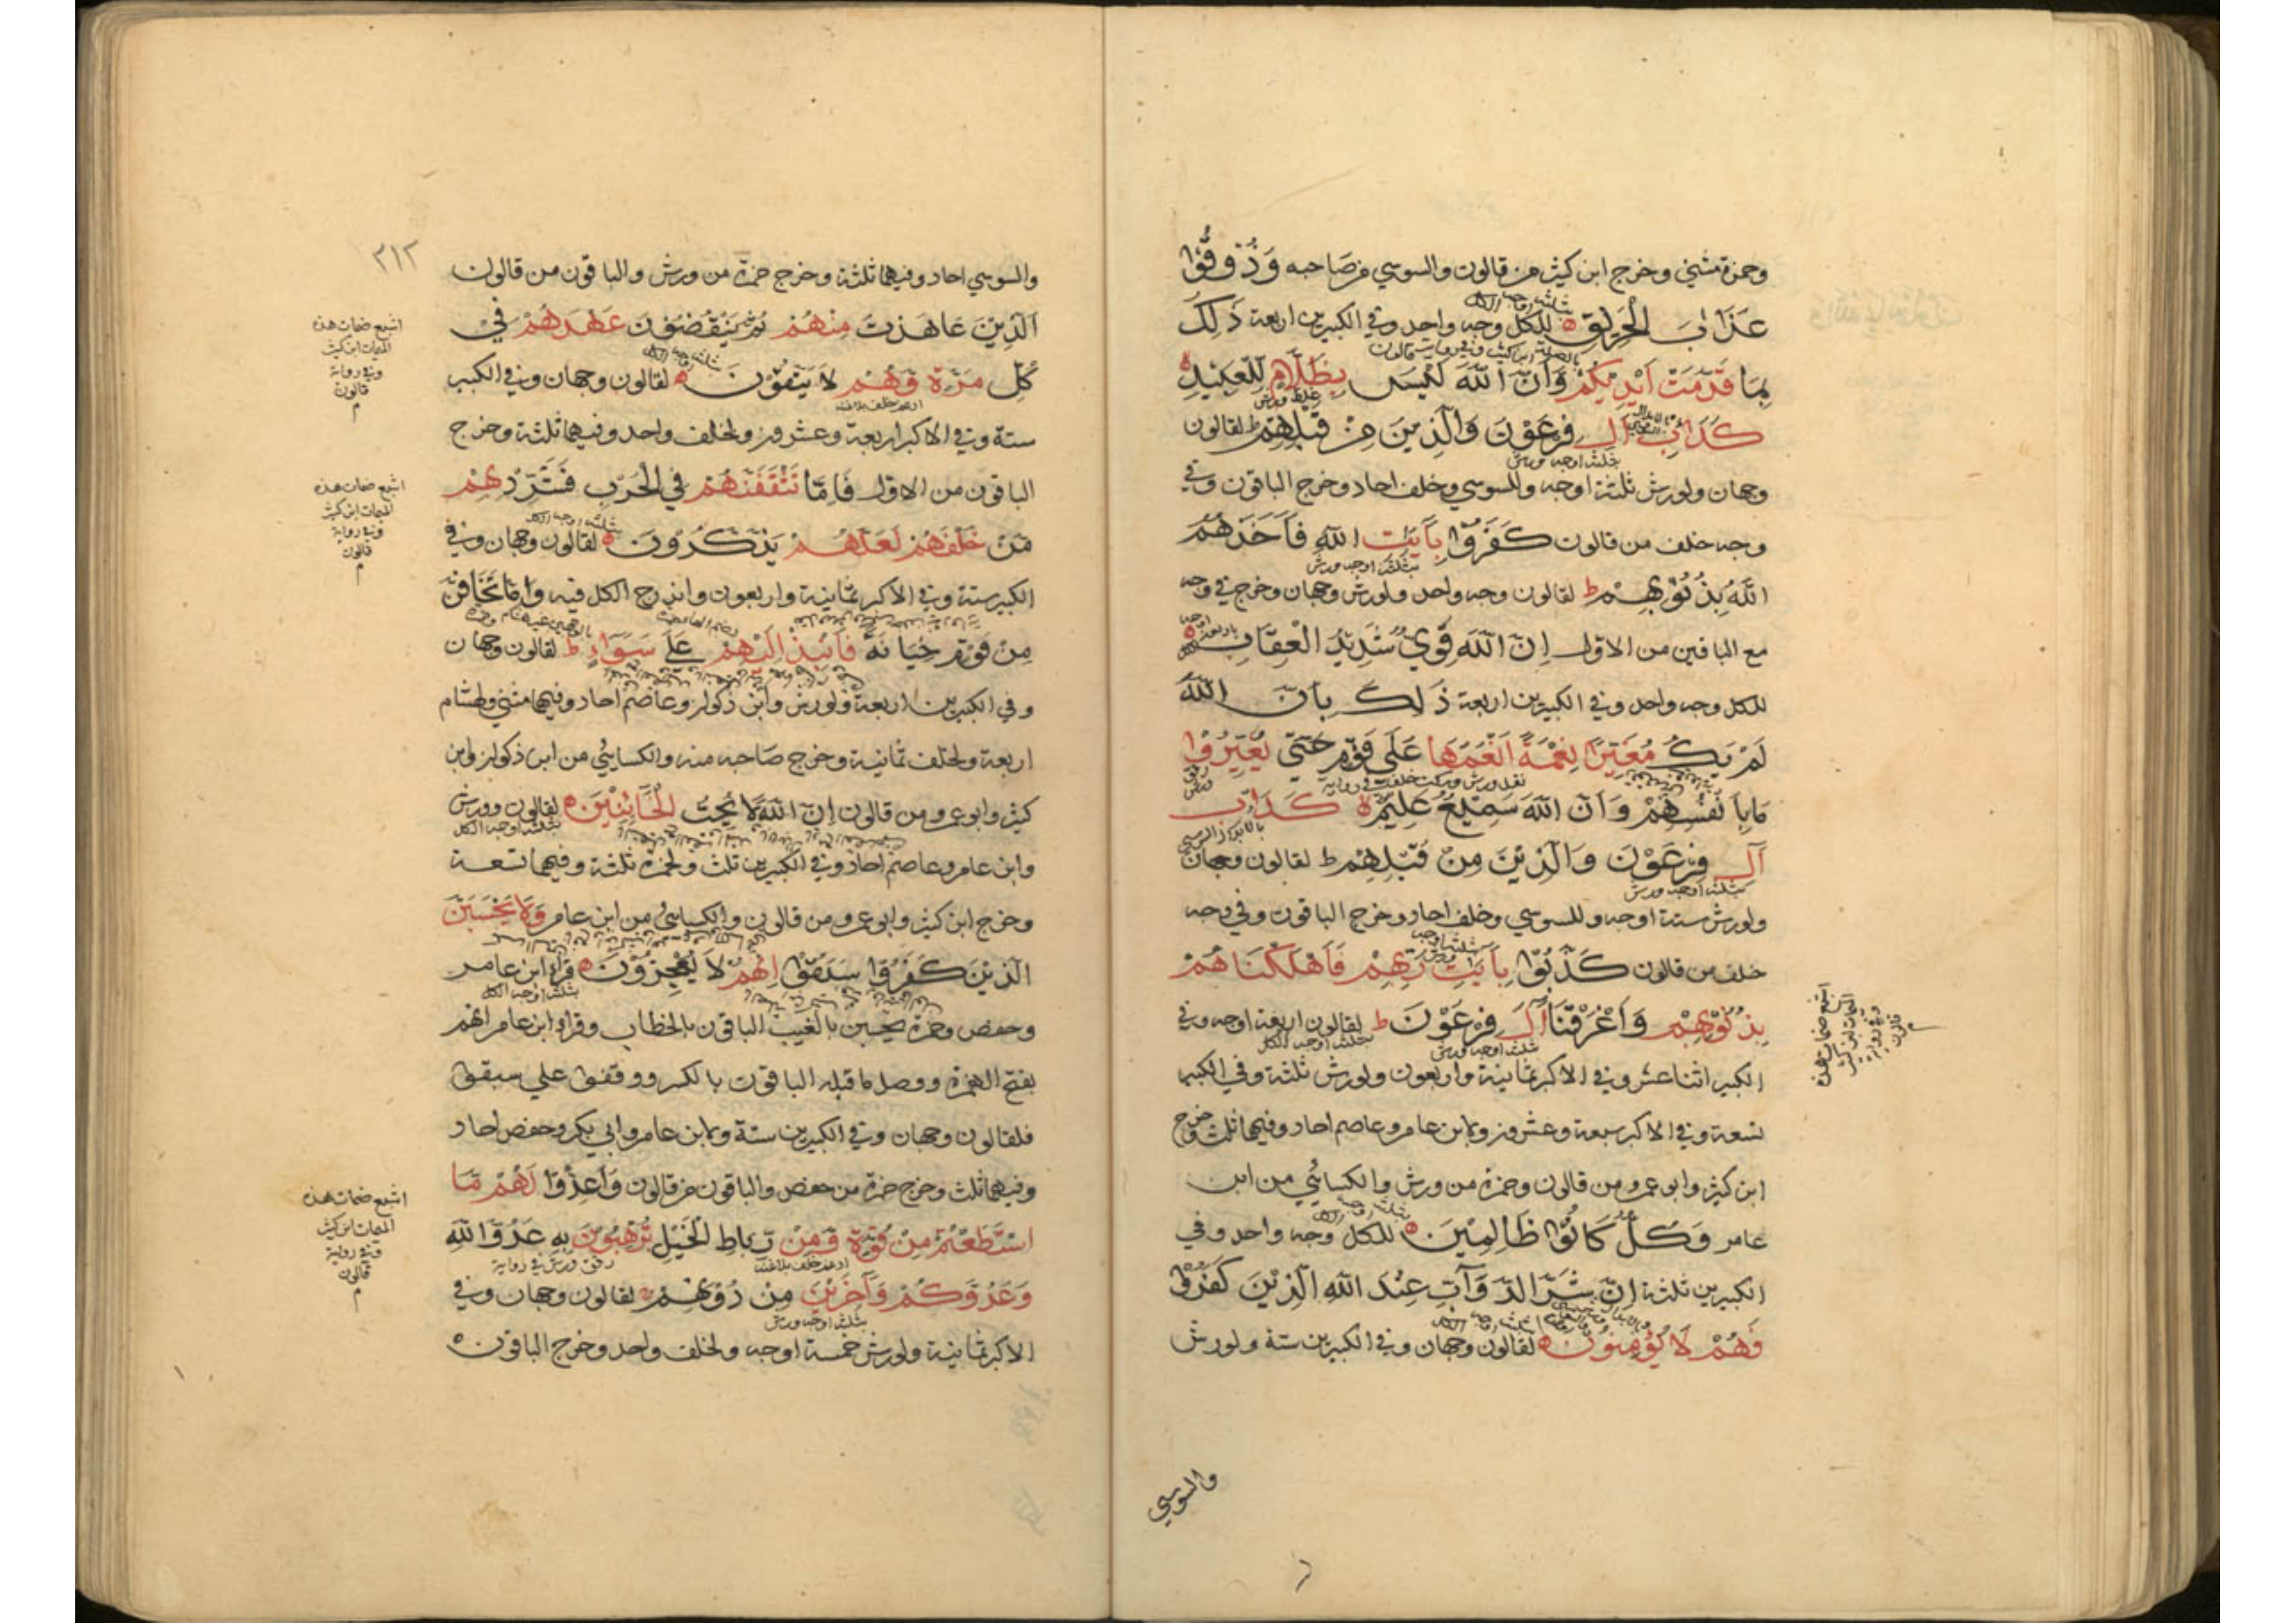 وحمزة مثنى وخرج ابن كثير من قالون والسوسي من صاحبه وَذُوقُوا
عَذَابَ الْحَرِيقِ للكل وجه واحد وفي الكبيرين اربعة ذَلِكَ
بِمَا قَدَّمَتْ اَيْدِيكُمْ وَاَنَّ اللَّهَ لَيْسَ بِظَلَّامٍ لِلْعَبِيدِ
كَدَاْبِ آلِ فِرْعَوْنَ وَالَّذِينَ مِنْ قَبْلِهِمْ ط لقالون
وجهان ولورش ثلثة اوجه وللسوسي وخلف احاد وخرج الباقون وفي
وجه خلف من قالون كَفَرُوا بِآيَتِ اللَّهِ فَاَخَذَهُمُ
اللَّهُ بِذُنُوبِهِمْ ط لقالون وجه واحد ولورش وجهان وخرج في وجه
مع الباقين من الاول اِنَّ اللَّهَ قَوِيٌّ شَدِيدُ الْعِقَابِ
للكل وجه واحد وفي الكبيرين اربعة ذَلِكَ بِاَنَّ اللَّهَ
لَمْ يَكُ مُغَيِّرًا نِعْمَةً اَنْعَمَهَا عَلَى قَوْمٍ حَتَّى يُغَيِّرُوا
مَا بِاَنْفُسِهِمْ وَاَنَّ اللَّهَ سَمِيعٌ عَلِيمٌ كَدَاْبِ
آلِ فِرْعَوْنَ وَالَّذِينَ مِنْ قَبْلِهِمْ ط لقالون وجهان
ولورش ستة اوجه وللسوسي وخلف احاد وخرج الباقون وفي وجه
خلف من قالون كَذَّبُوا بِآيَتِ رَبِّهِمْ فَاَهْلَكْنَاهُمْ
بِذُنُوبِهِمْ وَاَغْرَقْنَا آلَ فِرْعَوْنَ ط لقالون اربعة اوجه وفي
الكبير اثنا عشر وفي الاكبر ثمانية واربعون ولورش ثلثة وفي الكبير
تسعة وفي الاكبر سبعة وعشرون ولابن عامر وعاصم احاد وفيهما ثلث وخرج
ابن كثير وابو عمرو من قالون وحمزة من ورش والكسائي من ابن
عامر وَكُلٌّ كَانُوا ظَالِمِينَ للكل وجه واحد وفي
الكبيرين ثلثة اِنَّ شَرَّ الدَّوَآبِّ عِنْدَ اللَّهِ الَّذِينَ كَفَرُوا
فَهُمْ لَا يُؤْمِنُونَ لقالون وجهان وفي الكبيرين ستة ولورش
والسوسي
اشبع ضمات هذه
الميمات ابن كثير
وفي رواية
قالون
٢١٢
والسوسي احاد وفيهما ثلثة وخرج حمزة من ورش والباقون من قالون
اَلَّذِينَ عَاهَدْتَ مِنْهُمْ ثُمَّ يَنْقُضُونَ عَهْدَهُمْ فِي
كُلِّ مَرَّةٍ وَهُمْ لَا يَتَّقُونَ لقالون وجهان وفي الكبير
ستة وفي الاكبر اربعة وعشرون ولخلف واحد وفيهما ثلثة وخرج
الباقون من الاول فَاِمَّا تَثْقَفَنَّهُمْ فِي الْحَرْبِ فَشَرِّدْ بِهِمْ
مَنْ خَلْفَهُمْ لَعَلَّهُمْ يَذَّكَّرُونَ لقالون وجهان وفي
الكبير ستة وفي الاكبر ثمانية واربعون واندرج الكل فيه وَاِمَّا تَخَافَنَّ
مِنْ قَوْمٍ خِيَانَةً فَانْبِذْ اِلَيْهِمْ عَلَى سَوَآءٍ ط لقالون وجهان
وفي الكبيرين اربعة ولورش وابن ذكوان وعاصم احاد وفيهما مثنى ولهشام
اربعة ولخلف ثمانية وخرج صاحبه منه والكسائي من ابن ذكوان وابن
كثير وابو عمرو من قالون اِنَّ اللَّهَ لَا يُحِبُّ الْخَآئِنِينَ لقالون وورش
وابن عامر وعاصم احاد وفي الكبيرين ثلث ولحمزة ثلثة وفيهما تسعة
وخرج ابن كثير وابو عمرو من قالون والكسائي من ابن عامر وَلَا يَحْسَبَنَّ
الَّذِينَ كَفَرُوا سَبَقُوا اِنَّهُمْ لَا يُعْجِزُونَ قرأ ابن عامر
وحفص وحمزة يحسبن بالغيب الباقون بالخطاب وقرأ ابن عامر انهم
بفتح الهمزة ووصل ما قبله الباقون بالكسر ووقفوا على سبقوا
فلقالون وجهان وفي الكبيرين ستة ولابن عامر وابي بكر وحفص احاد
وفيهما ثلث وخرج حمزة من حفص والباقون من قالون وَاَعِدُّوا لَهُمْ مَا
اسْتَطَعْتُمْ مِنْ قُوَّةٍ وَمِنْ رِبَاطِ الْخَيْلِ تُرْهِبُونَ بِهِ عَدُوَّ اللَّهِ
وَعَدُوَّكُمْ وَآخَرِينَ مِنْ دُونِهِمْ لقالون وجهان وفي
الاكبر ثمانية ولورش خمسة اوجه ولخلف واحد وخرج الباقون
اشبع ضمات هذه
الميمات ابن كثير
وفي رواية
قالون
اشبع ضمات هذه
الميمات ابن كثير
وفي رواية
قالون
اشبع ضمات هذه
الميمات ابن كثير
وفي رواية
قالون